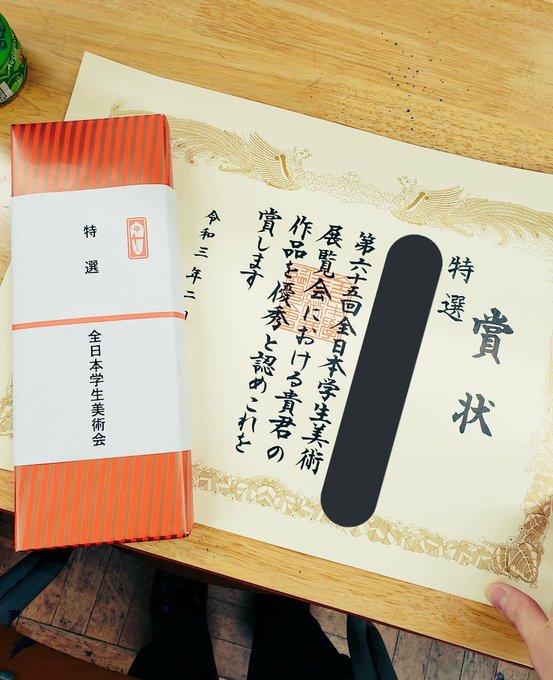 賞状
特選
第六十五回全日本学生美術
展覧会における貴君の
作品を優秀と認めこれを
賞します
令和三年二
特選
全日本学生美術会